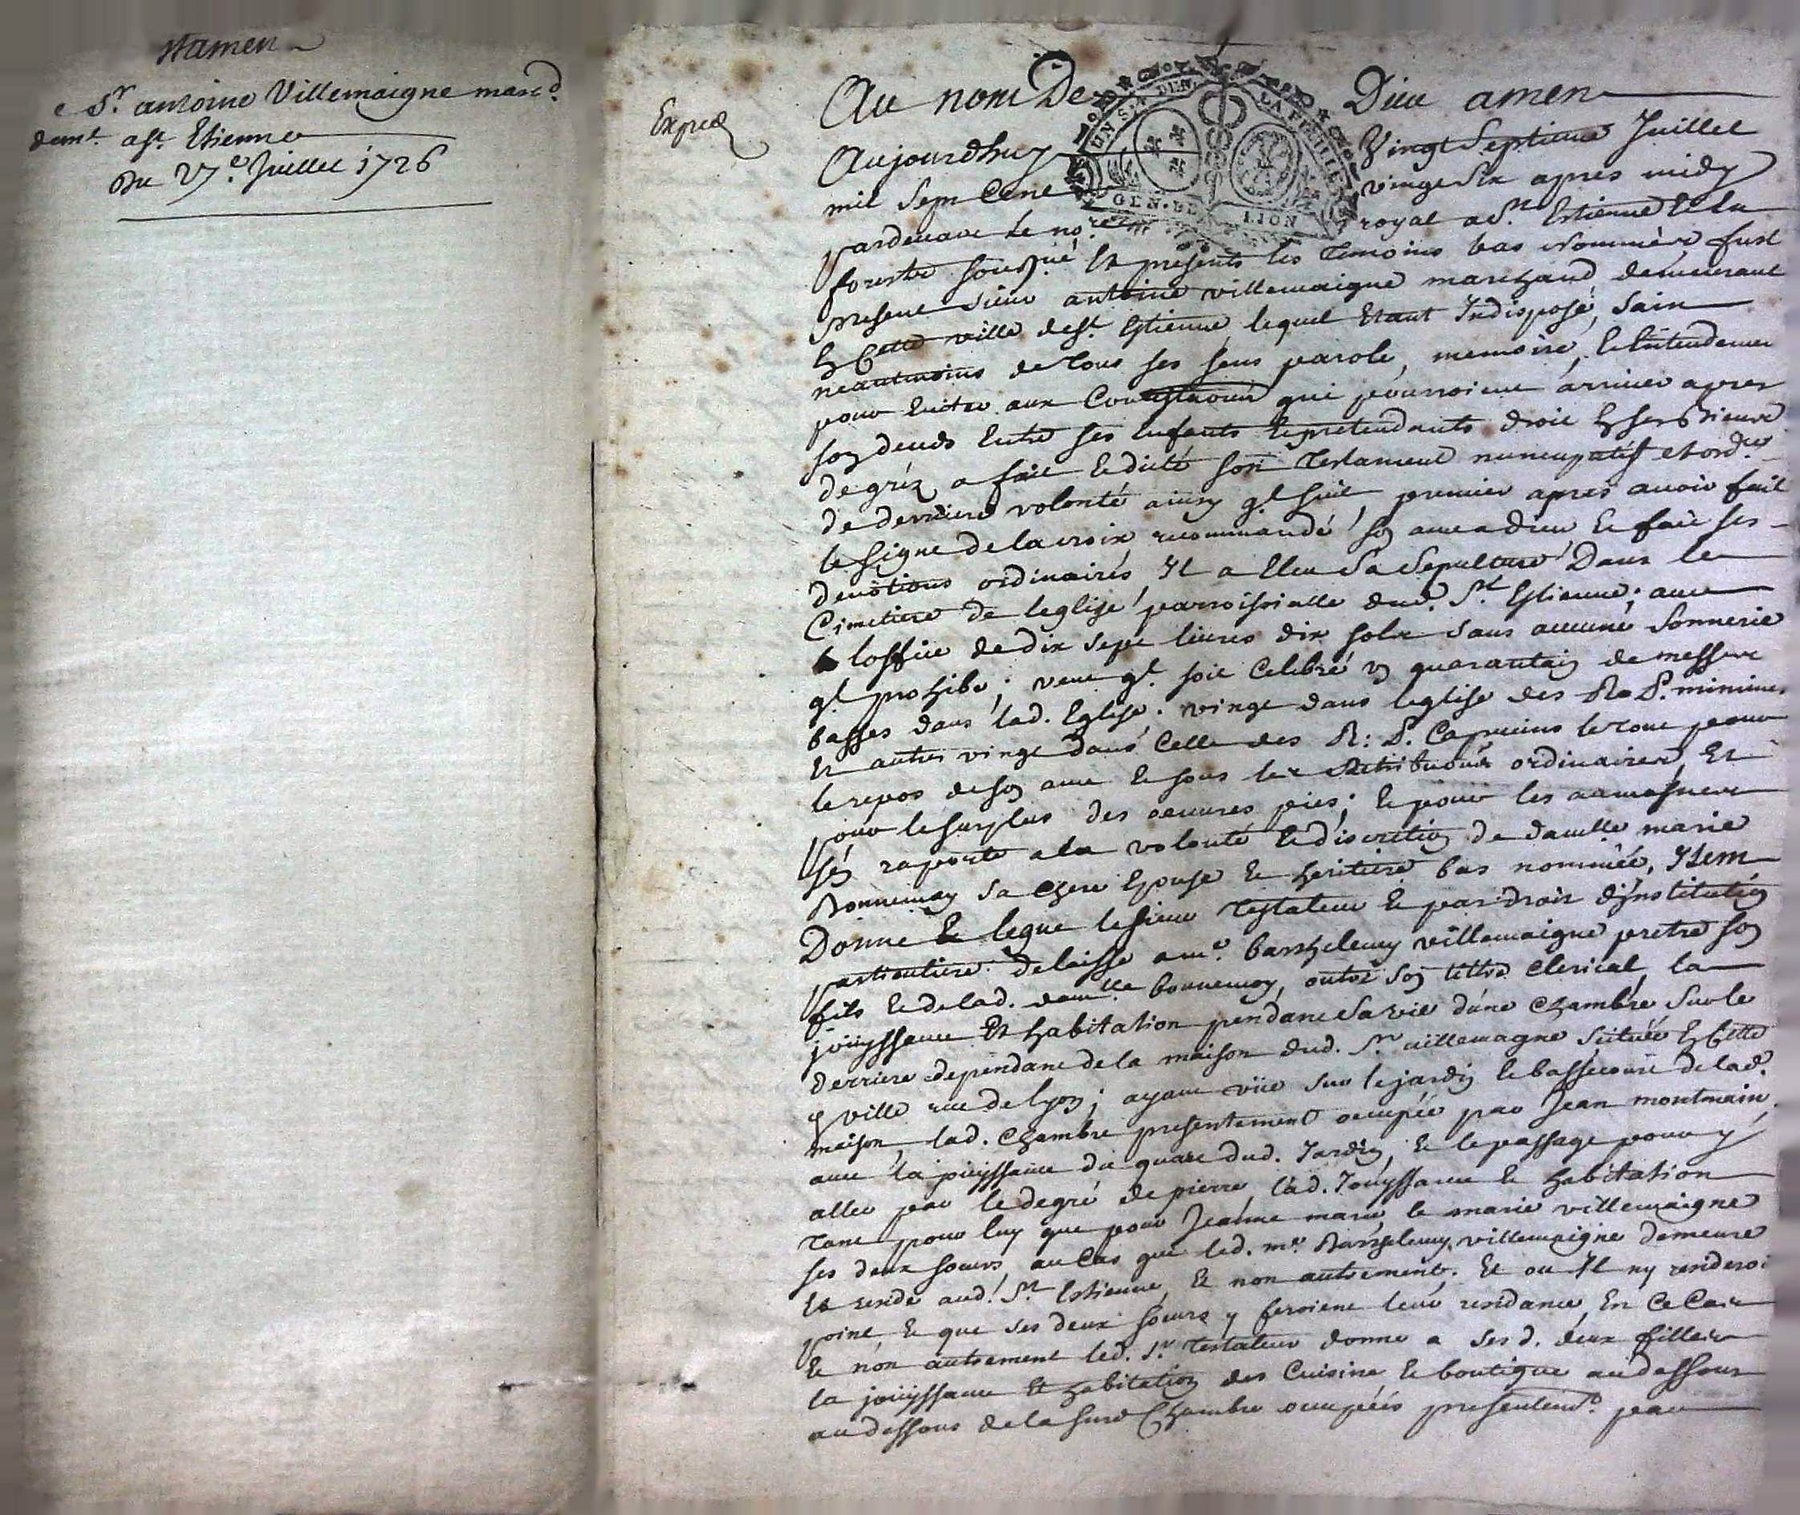 stamen
Sr antoine Villemaigne marcd.
demt. a st. Etienne
Du 27e. Juillet 1726
Expiee
Au nom De Dieu amen
Aujourdhuy Vingt Septieme Juillet
mil Sept Cent vingt Six apres midy
pardevant le nore. royal a St. Estienne Et la
forests Sousné Et presents les Temoins bas Nommés fust
present Sieur antoine villemaigne marchand demeurant
En Cette ville de st. Estienne, lequel Etant Indisposé, Sain
neantmoins de Tous ses sens parole, memoire, Et Entendement
pour Eviter aux Contestaons qui pourroient arriver apres
son deceds Entre ses Enfants Et pretendants droit En ses Biens
de gréz a fait Et dicté son Testament nuncupatif et ordre
de derniere volonté ainsy ql. suit, premier apres avoir fait
le Signe de la croix recommandé son ame a dieu Et fait ses
devotions ordinaires Il a Eleu Sa Sepulture Dans le
Cimetiere de leglise parroissialle dud. St. Estienne; avec
loffice de dix sept livres dix sols Sans aucune Sonnerie
ql. prohibe; veut ql. soit Celebré un quarantain de messes
basses dans lad. Eglise. vingt dans leglise des R. P. minimes
Et autres vingt dans Celle des R: P. Capucins le tout pour
le repos de son ame Et sous les Retributions ordinaires, Et
pour le surplus des oeuvres pies; Et pour les aumosnes
sen raporte a la volonté Et discretion de damlle marie
Bonnemoy Sa chere Epouse Et heritiere bas nommée, Item
Donne Et legue le sieur Testateur Et par droit dinstitution
particuliere delaisse a me. Barthelemy villemaigne pretre son
fils Et de lad. damlle bonnemoy, outre son tittre clerical, la
jouyssance Et habitation pendant Sa vie dune chambre Sur le
derriere dependant de la maison dud. Sr. villemagne Scituée En Cette
ville rue de lyon; ayant vüe sur le jardin Et bassecourt de lad.
maison, lad. chambre presentement occupée par Jean montmain,
avec la jouyssance du quart dud. Jardin, Et le passage pour y
aller par le degré de pierre, lad. Jouyssance Et habitation
Tant pour luy que pour Jeanne marie Et marie villemaigne
ses deux soeurs, au Cas que led. me. Barthelemy villemaigne demeure
Et reside aud. St. Estienne, Et non autrement. Et ou Il ny resideroit
point Et que ses deux soeurs y feroient leur residance, En Ce Cas
Et non autrement led. Sr. Testateur donne a ses d. deux filles
la jouyssance Et habitation des Cuisine Et boutique au dessous
au dessous de la susd. Chambre occupées presentemt. par
GEN. DE LION